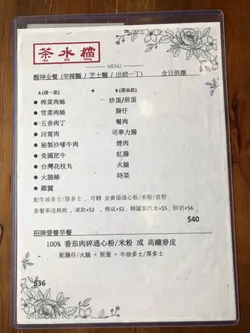 茶水檔
MENU
醒神全餐 (辛辣麵 / 芝士麵 / 出前一丁) 全日供應
A (選一款) + B (選兩款)
榨菜肉絲 炒蛋/煎蛋
雪菜肉絲 腸仔
五香肉丁 餐肉
回窩肉 司華力腸
秘製沙嗲牛肉 煙肉
美國肥牛 紅腸
台灣花枝丸 火腿
火腿絲 時菜
雞翼
配牛油多士/厚多士 , 可轉 全蛋麵通心粉/米粉/意粉
套餐奉送熱飲 , 凍飲+$2 , 轉汽水+$5 , 鮮奶+$6
$40
招牌營養早餐
100% 番茄肉碎通心粉/米粉 或 高纖麥皮
配腸仔/火腿 + 煎蛋 + 牛油多士/厚多士
$36